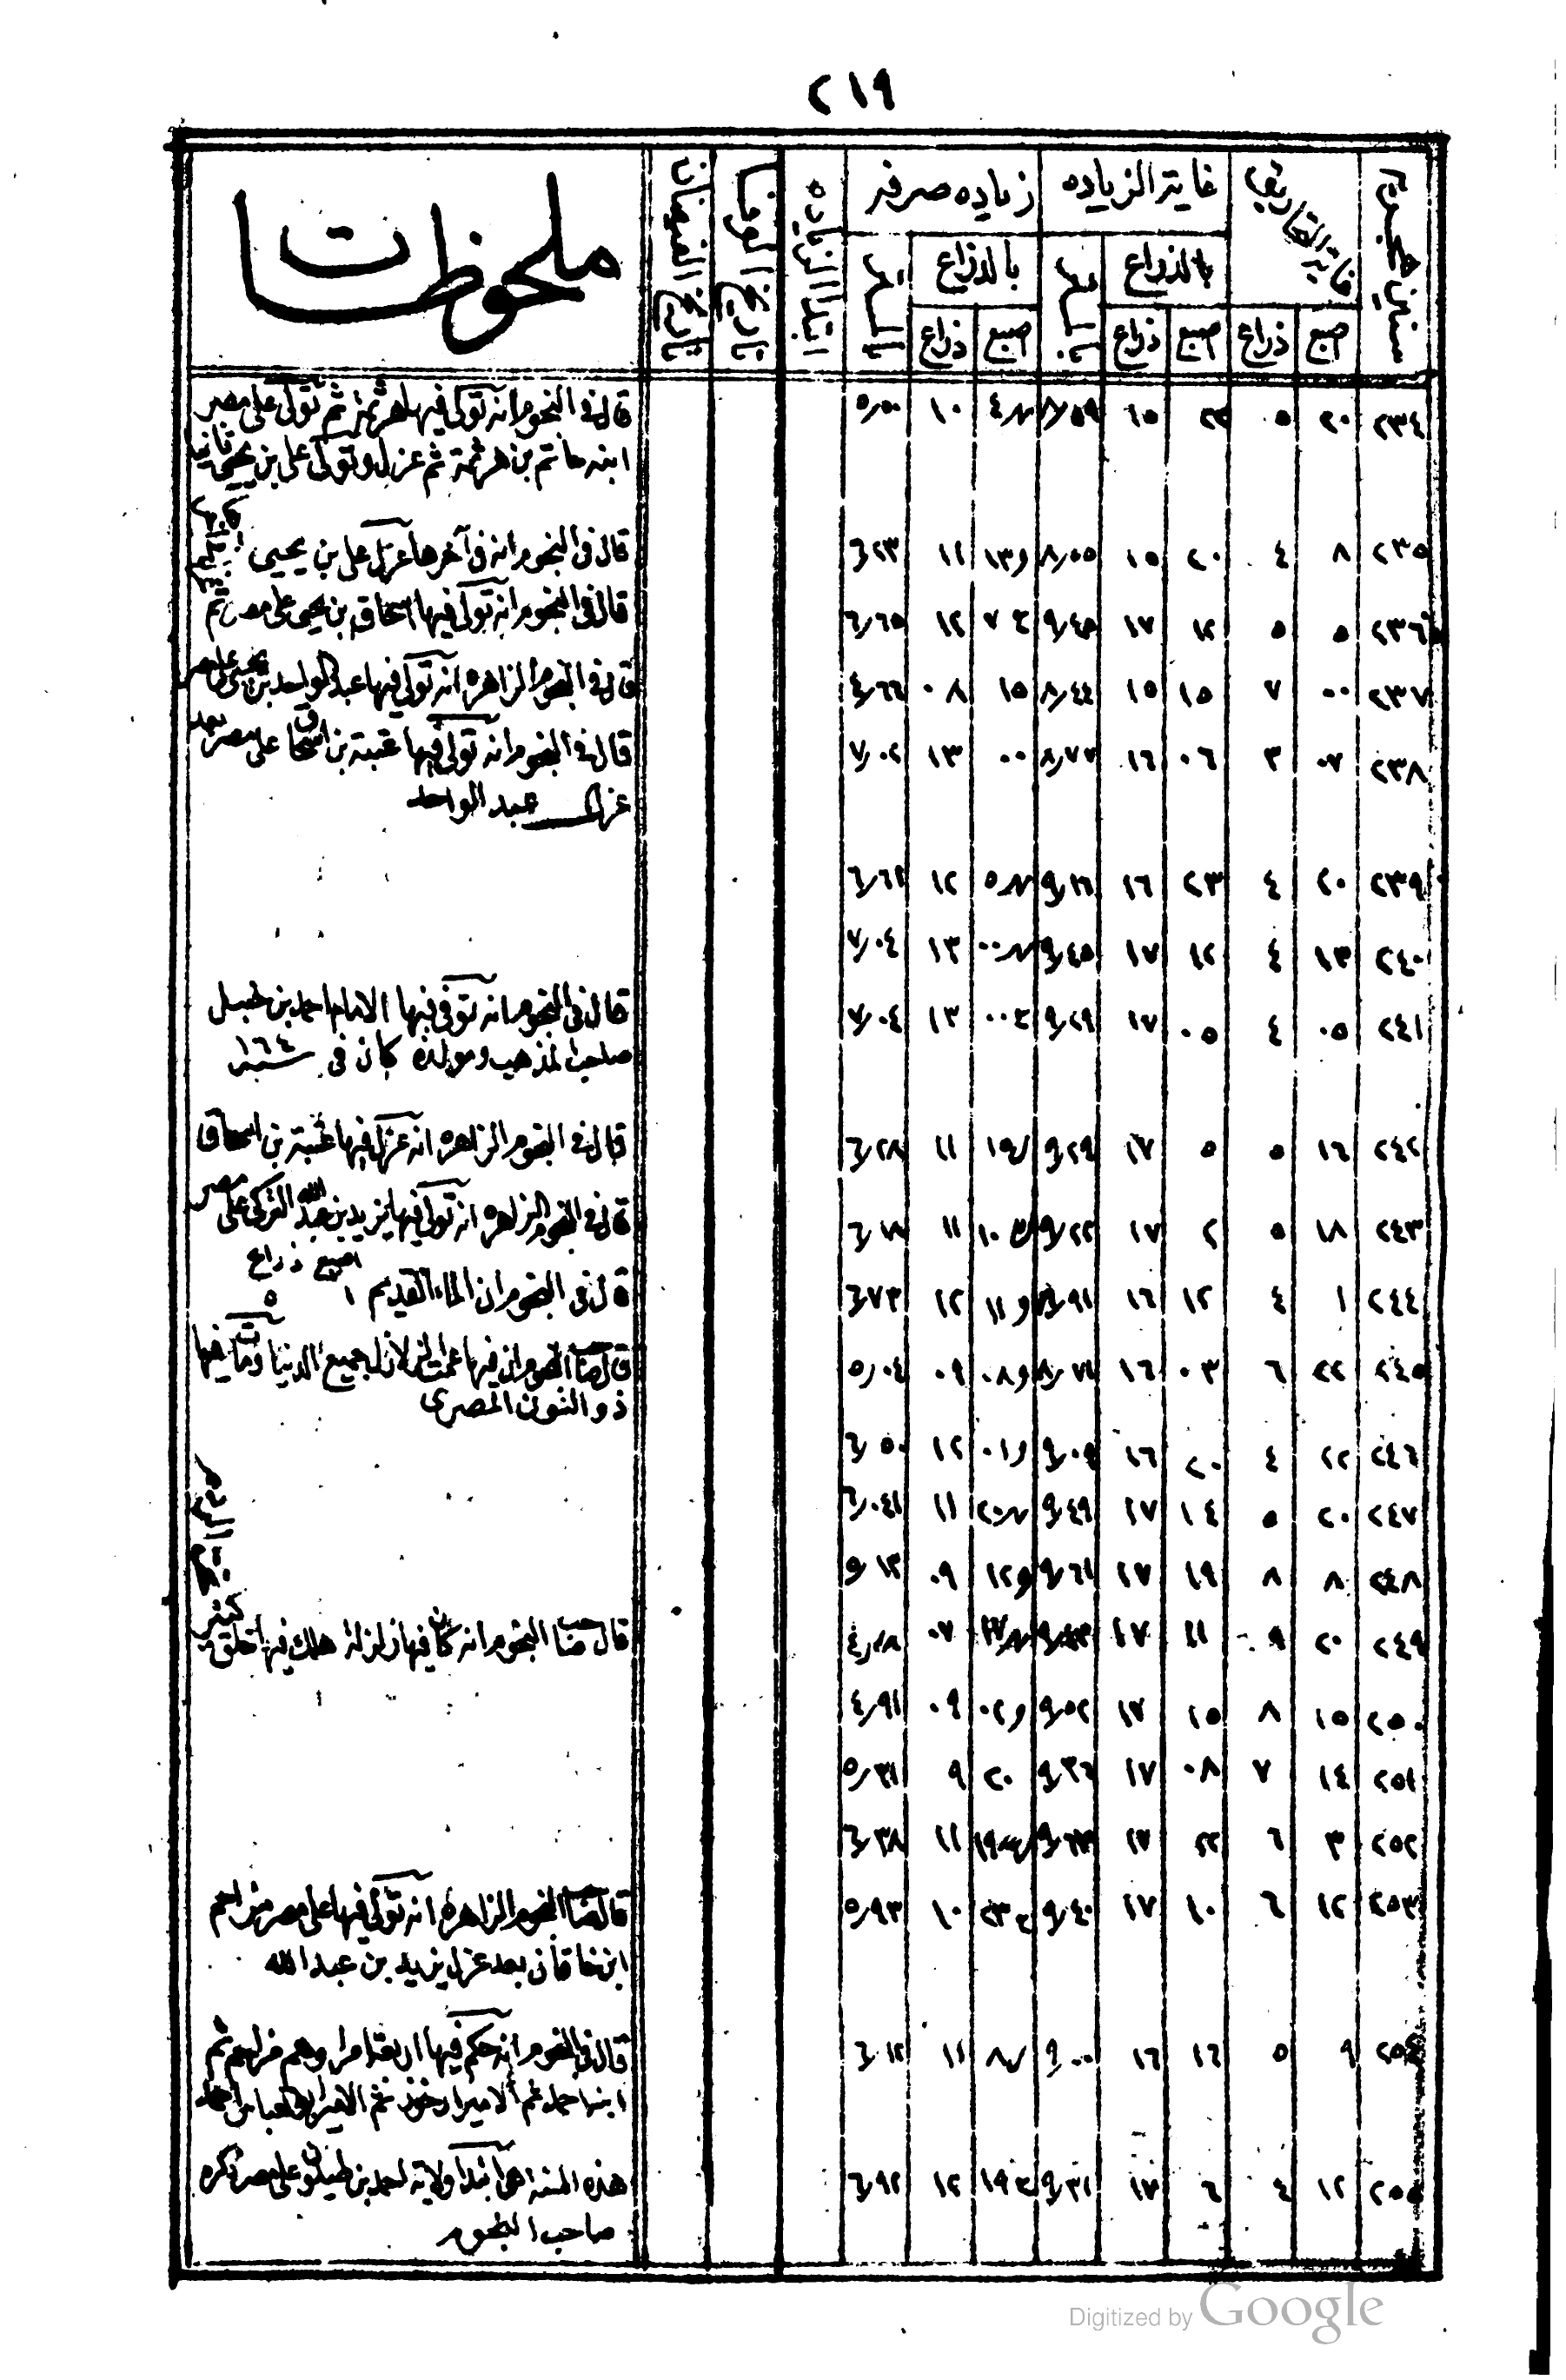 ٢١٩
سنين هجريه | غاية التحاريق | غاية الزياده | زياده صرفه | ابتدا الزياده | تاريخ الوفا | تاريخ الفيضان | ملحوظات
بالذراع | بالذراع
اصبع | ذراع | اصبع | ذراع | اصبع | ذراع
٢٣٤ ٢٠ ٥ ٢٢ ١٥ ٨٫٥٩ ١٠ ٥٫٥٠ قال فى النجوم انه تولى فيها هرثمة ثم تولى على مصر
ابنه حاتم بن هرثمة ثم عزل وتولى على بن يحيى ثانيا
٢٣٥ ٨ ٤ ٢٠ ١٥ ٨٫٥٥ ١٣ ١١ ٦٫٢٣ قال فى النجوم انه فى آخرها عزل على بن يحيى
٢٣٦ ٥ ٥ ١٢ ١٧ ٩٫٤٥ ٧ ١٢ ٦٫٦٥ قال فى النجوم انه تولى فيها اسحاق بن يحيى على مصر ثم
٢٣٧ ٠٠ ٧ ١٥ ١٥ ٨٫٤٤ ١٥ ٠٨ ٤٫٦٦ قال فى النجوم الزاهره انه تولى فيها عبد الواحد بن يحيى على مصر
٢٣٨ ٠٧ ٣ ٠٦ ١٦ ٨٫٧٧ ٠٠ ١٣ ٧٫٠٢ قال فى النجوم انه تولى فيها عنبسة بن اسحاق على مصر بعد
عزل عبد الواحد
٢٣٩ ٢٠ ٤ ٢٣ ١٦ ٩٫١٦ ٥ ١٢ ٦٫٦١
٢٤٠ ١٣ ٤ ١٢ ١٧ ٩٫٤٥ ٠٠ ١٣ ٧٫٠٤
٢٤١ ٠٥ ٤ ٠٥ ١٧ ٩٫٢٩ ٠٠ ١٣ ٧٫٠٤ قال فى النجوم انه توفى فيها الامام احمد بن حنبل
صاحب المذهب ومولده كان فى سنة ١٦٤
٢٤٢ ١٦ ٥ ٥ ١٧ ٩٫٢٩ ١٥ ١١ ٦٫٢٨ قال فى النجوم الزاهره انه عزل فيها عنبسة بن اسحاق
٢٤٣ ١٨ ٥ ٢ ١٧ ٩٫٢٢ ١٠ ١١ ٦٫١٨ قال فى النجوم الزاهره انه تولى فيها يزيد بن عبد الله التركى على مصر
اصبع ذراع
٢٤٤ ١ ٤ ١٢ ١٦ ١١ ١٢ ٦٫٧٣ قال فى النجوم ان الماء القديم ١ ٥
٢٤٥ ٢٢ ٦ ٠٣ ١٦ ٨٫٧١ ٠٨ ٠٩ ٥٫٠٤ قال صاحب النجوم ان فيها عمت الزلازل جميع الدنيا ومات فيها
ذو النون المصرى
٢٤٦ ٢٢ ٤ ٢٠ ١٦ ٩٫٠٩ ٠١ ١٢ ٦٫٥٠
٢٤٧ ٢٠ ٥ ١٤ ١٧ ٩٫٤٩ ٢٠ ١١ ٦٫٠٤١
٢٤٨ ٨ ٨ ١٩ ١٧ ٩٫٦١ ١٢ ٠٩ ٥٫١٣
٢٤٩ ٢٠ ٩ ١١ ١٧ ٠٧ ٤٫٢٨ قال صاحب النجوم انه كان فيها زلزلة هلك فيها خلق كثير
٢٥٠ ١٥ ٨ ١٥ ١٧ ٩٫٥٢ ٠٢ ٠٩ ٤٫٩١
٢٥١ ١٤ ٧ ٠٨ ١٧ ٩٫٣٦ ٢٠ ٩ ٥٫٣١
٢٥٢ ٣ ٦ ٢٢ ١٧ ١٩ ١١ ٦٫٣٨
٢٥٣ ١٢ ٦ ١٠ ١٧ ٩٫٤٠ ٢٣ ١٠ ٥٫٩٣ قال صاحب النجوم الزاهرة انه تولى فيها على مصر مزاحم
ابن خاقان بعد عزل يزيد بن عبد الله
٢٥٤ ٩ ٥ ١٦ ١٦ ٩٫٠٠ ٨ ١١ ٦٫١٢ قال فى النجوم انه حكم فيها اربعة امرا وهم مزاحم ثم
ابنه احمد ثم الامير ارخوز ثم الامير ابو العباس احمد
٢٥٥ ١٢ ٤ ٦ ١٧ ٩٫٣١ ١٩ ١٢ ٦٫٩٢ هذه السنه هى ابتدا ولاية احمد بن طيلون على مصر ذكره
صاحب النجوم
Digitized by Google